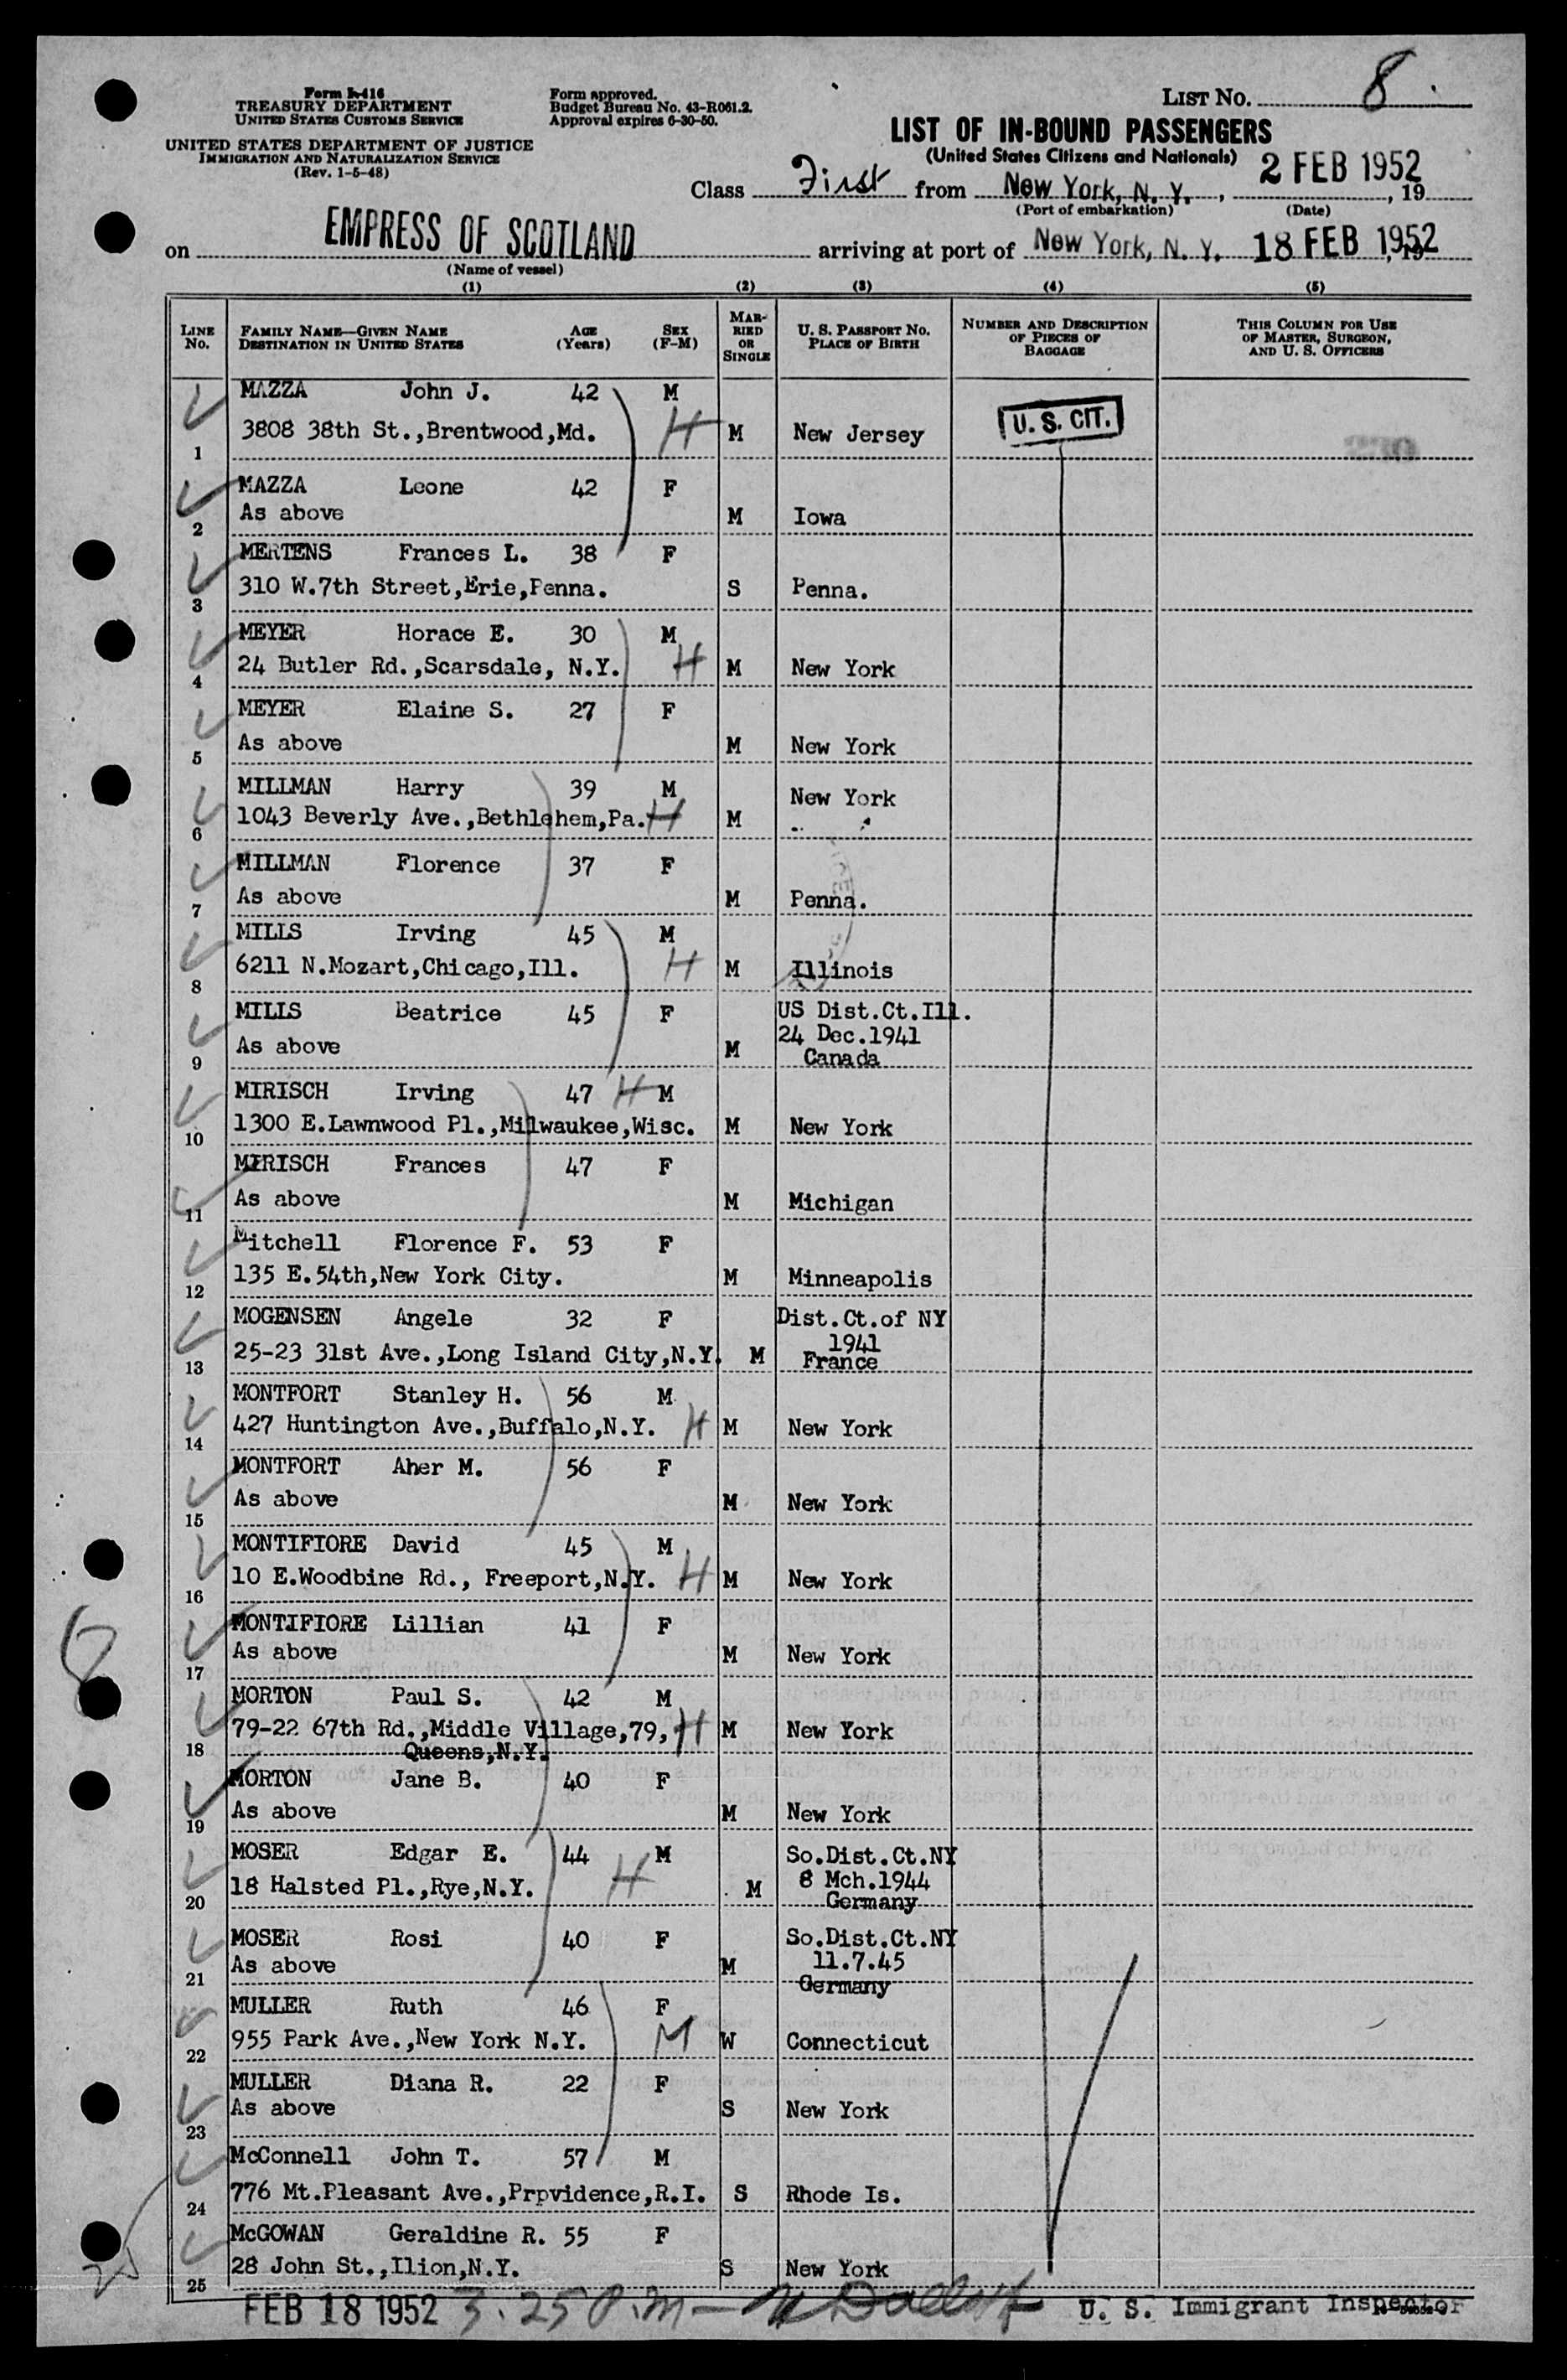 Form I-416
TREASURY DEPARTMENT
UNITED STATES CUSTOMS SERVICE
UNITED STATES DEPARTMENT OF JUSTICE
IMMIGRATION AND NATURALIZATION SERVICE
(Rev. 1-5-48)
Form approved.
Budget Bureau No. 43-R061.2.
Approval expires 6-30-50.
LIST NO. 8
LIST OF IN-BOUND PASSENGERS
(United States Citizens and Nationals)
Class First from New York, N. Y., 2 FEB 1952, 19
(Port of embarkation) (Date)
on EMPRESS OF SCOTLAND arriving at port of New York, N. Y. 18 FEB 1952, 19
(Name of vessel)
(1) (2) (3) (4) (5)
LINE NO.
FAMILY NAME—GIVEN NAME
DESTINATION IN UNITED STATES
AGE (Years)
SEX (F-M)
MARRIED OR SINGLE
U. S. PASSPORT NO.
PLACE OF BIRTH
NUMBER AND DESCRIPTION OF PIECES OF BAGGAGE
THIS COLUMN FOR USE OF MASTER, SURGEON, AND U. S. OFFICERS
MAZZA John J. 42 M
3808 38th St.,Brentwood,Md. H M New Jersey U. S. CIT. 230
1
MAZZA Leone 42 F
As above M Iowa
2
MERTENS Frances L. 38 F
310 W.7th Street,Erie,Penna. S Penna.
3
MEYER Horace E. 30 M
24 Butler Rd.,Scarsdale, N.Y. H M New York
4
MEYER Elaine S. 27 F
As above M New York
5
MILLMAN Harry 39 M New York
1043 Beverly Ave.,Bethlehem,Pa. H M
6
MILLMAN Florence 37 F
As above M Penna.
7
MILLS Irving 45 M
6211 N.Mozart,Chicago,Ill. H M Illinois
8
MILLS Beatrice 45 F US Dist.Ct.Ill.
24 Dec.1941
As above M Canada
9
MIRISCH Irving 47 H M
1300 E.Lawnwood Pl.,Milwaukee,Wisc. M New York
10
MIRISCH Frances 47 F
As above M Michigan
11
Mitchell Florence F. 53 F
135 E.54th,New York City. M Minneapolis
12
MOGENSEN Angele 32 F Dist.Ct.of NY
1941
25-23 31st Ave.,Long Island City,N.Y. M France
13
MONTFORT Stanley H. 56 M
427 Huntington Ave.,Buffalo,N.Y. H M New York
14
MONTFORT Aher M. 56 F
As above M New York
15
MONTIFIORE David 45 M
10 E.Woodbine Rd., Freeport,N.Y. H M New York
16
MONTIFIORE Lillian 41 F
As above M New York
17
MORTON Paul S. 42 M
79-22 67th Rd.,Middle Village,79, H M New York
18 Queens,N.Y.
MORTON Jane B. 40 F
As above M New York
19
MOSER Edgar E. 44 M So.Dist.Ct.NY
18 Halsted Pl.,Rye,N.Y. H M 8 Mch.1944
20 Germany
MOSER Rosi 40 F So.Dist.Ct.NY
As above M 11.7.45
21 Germany
MULLER Ruth 46 F
955 Park Ave.,New York N.Y. M W Connecticut
22
MULLER Diana R. 22 F
As above S New York
23
McConnell John T. 57 M
776 Mt.Pleasant Ave.,Prpvidence,R.I. S Rhode Is.
24
McGOWAN Geraldine R. 55 F
28 John St.,Ilion,N.Y. S New York
25
8
25
FEB 18 1952 3.25 P.M – U. S. Immigrant Inspector